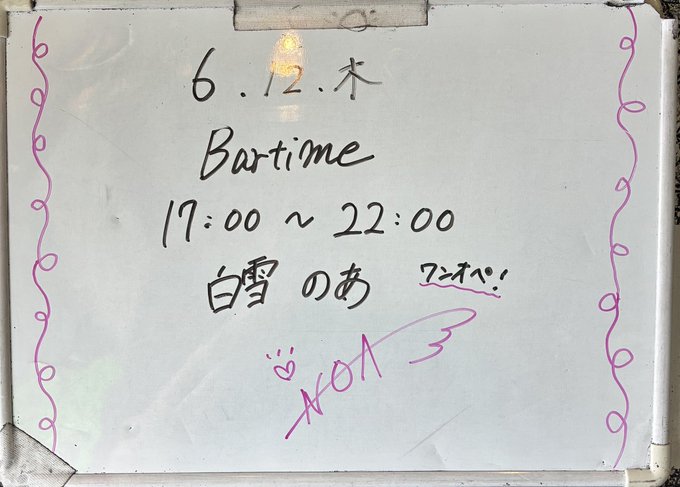 6.12.木
Bartime
17:00 ~ 22:00
白雪 のあ ワンオペ!
NOA